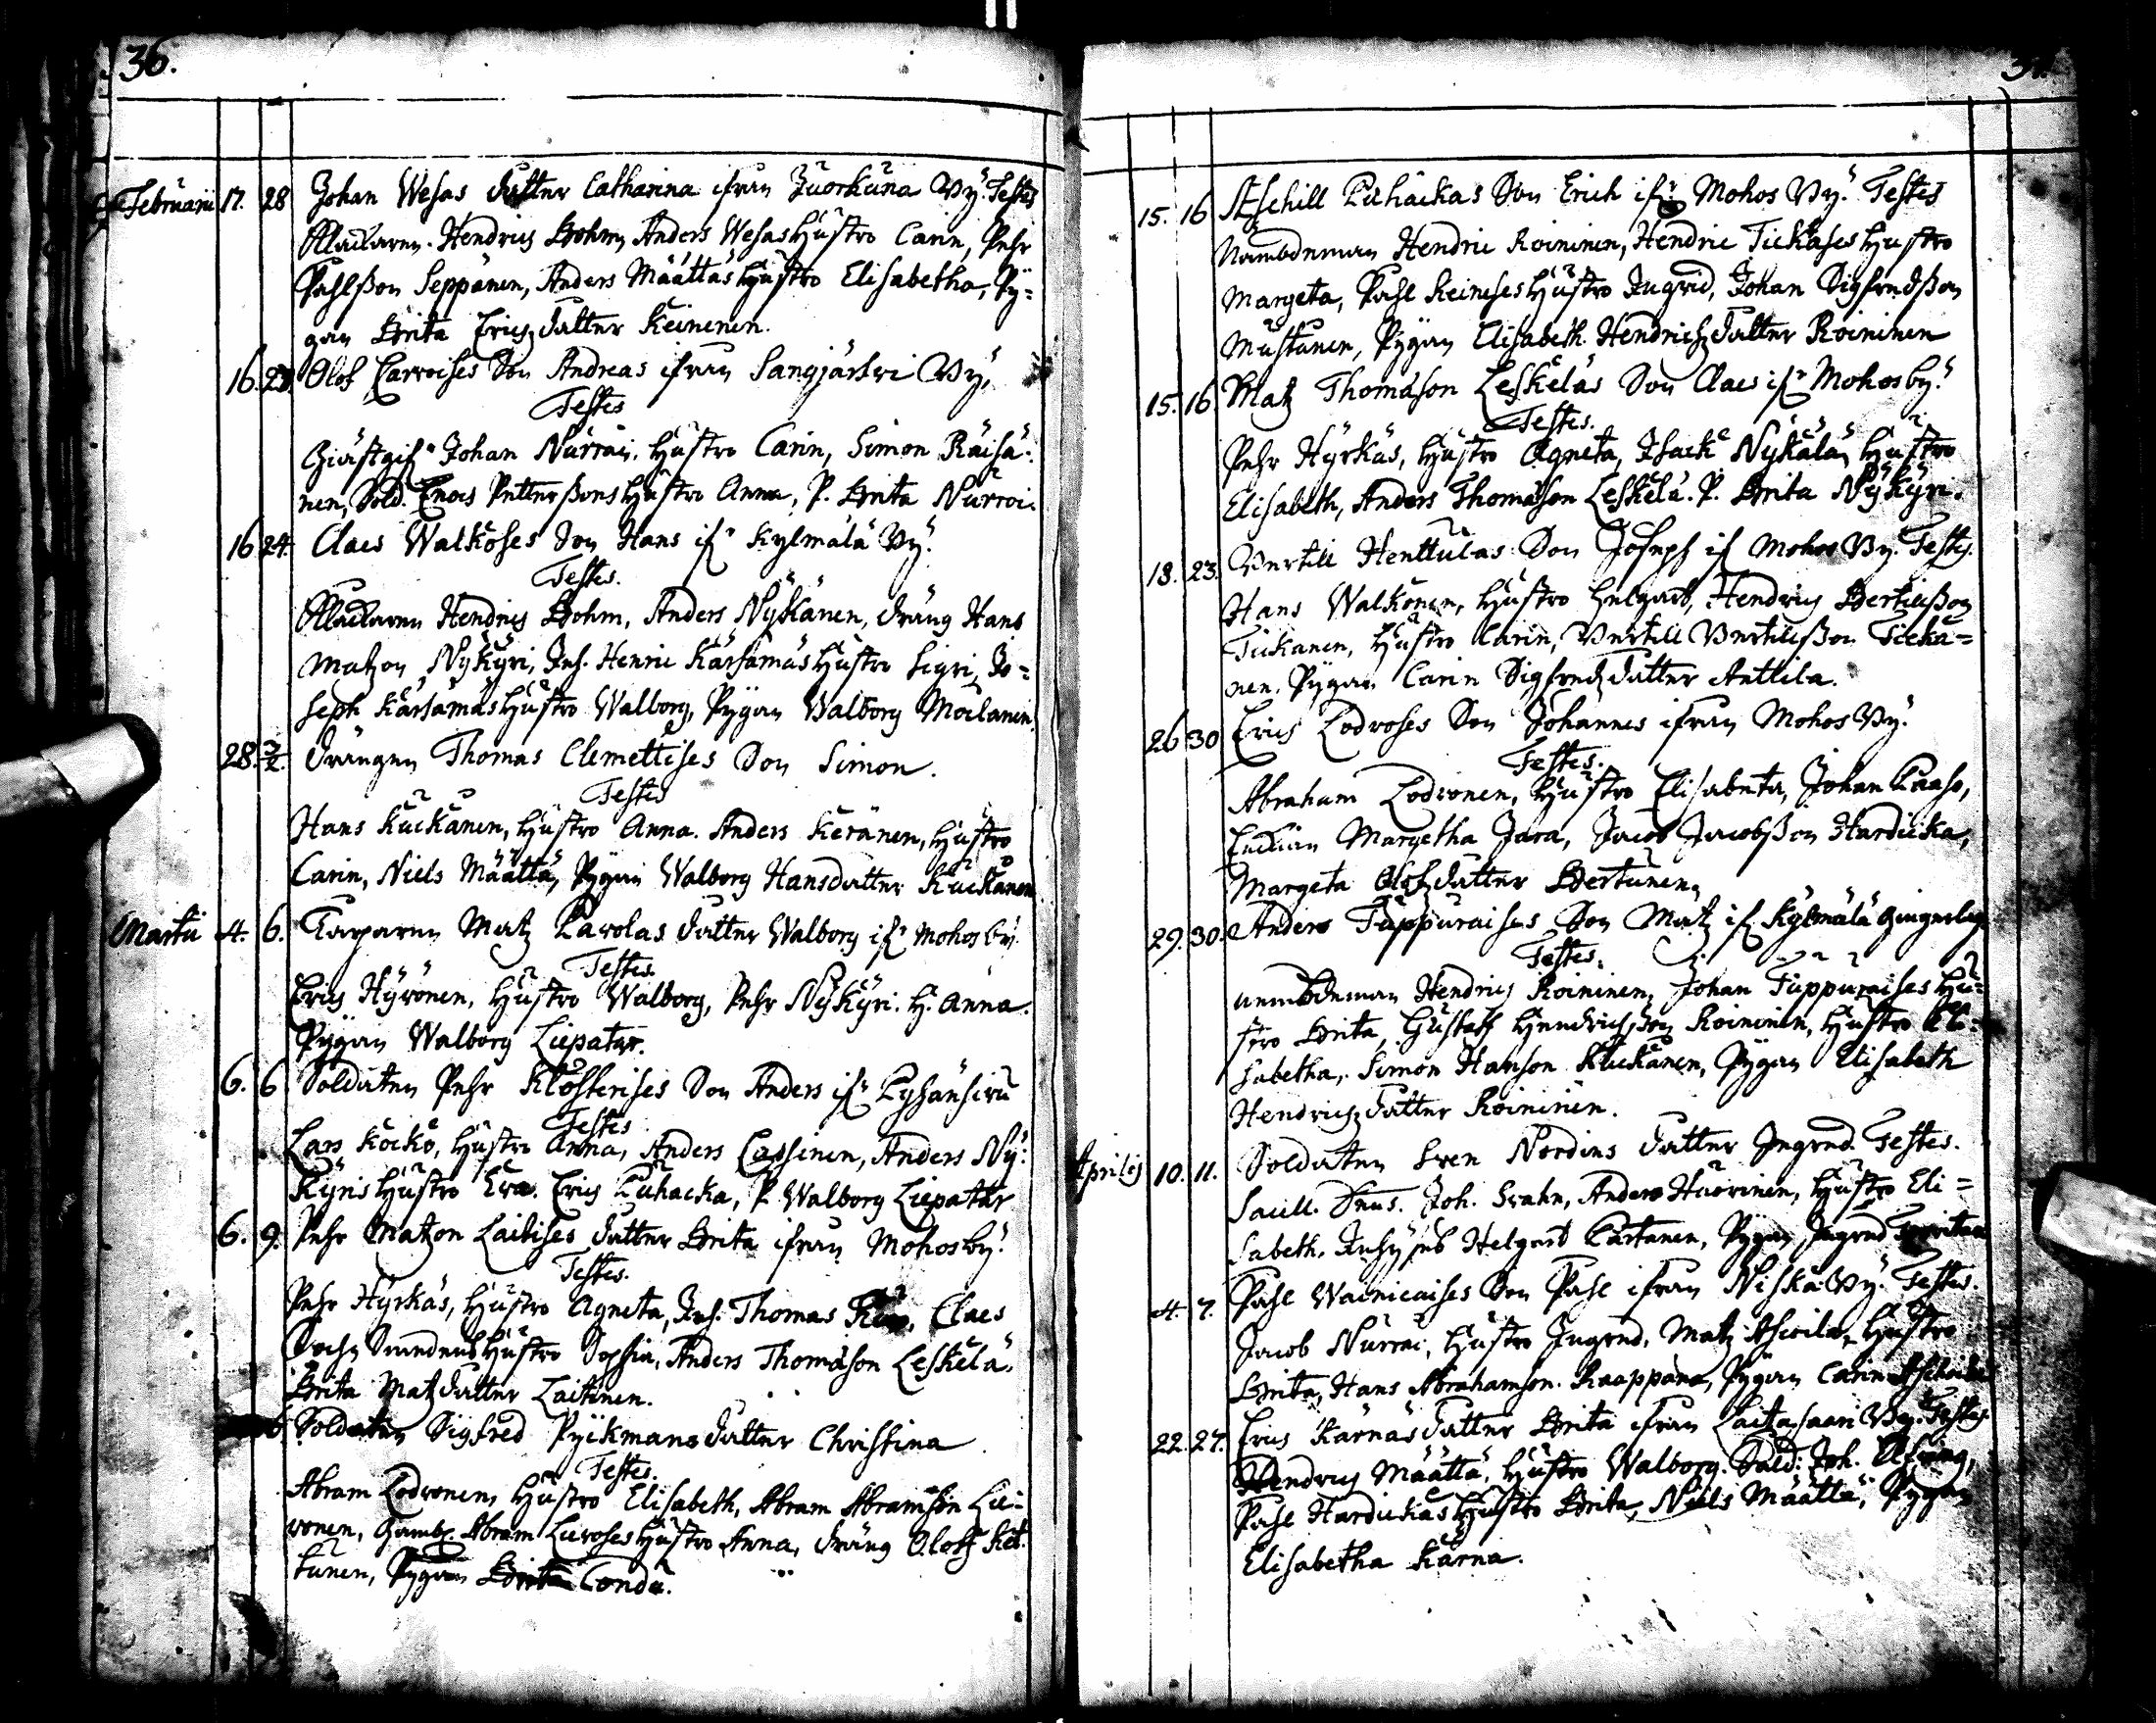 36.
Februarii 17. 28 Johan Wesas dotter Catharina ifrån Juorkuna By. Testes
Hendrich Bohm, Anders Wesas Hustro Carin, Pehr
Påhlsson Seppänen, Anders Määttäs Hustro Elisabetha, Py-
gan Brita Erichzdotter Keinenen.
16. 23. Olof Carvoises Son Andreas ifrån Sangjärfwi By,
Testes
Giästgif. Johan Nurrai. Hustro Carin, Simon Räisä-
nen, Sold. Enoes Pettersons Hustro Anna, P. Brita Nurroi.
16 24. Claes Walkoses Son Hans if. Kylmälä By.
Testes.
Hendrich Bohm, Anders Nykänen, dräng Hans
Matzon Nykyri, Inh. Henric Kärsämäs Hustro Sigri, Jo-
seph Kärsämäs Hustro Walborg, Pygan Walborg Moilanen
28. 2/2. Drängen Thomas Clemettises Son Simon.
Testes
Hans Kuckanen, Hustro Anna. Anders Keränen, Hustro
Carin, Niels Määttä, Pygan Walborg Hansdotter Kuckanen
Martii 4. 6. Torparen Matz Lavolas dotter Walborg if. Mohosby.
Testes.
Erich Hyrönen, Hustro Walborg, Pehr Nykyri. H. Anna.
Pygan Walborg Liepatar.
6. 6 Soldaten Pehr Klosterises Son Anders if.
Testes
Lars Kocko, Hustro Anna, Anders Cassinen, Anders Ny-
kyris Hustro Eva. Erich Luhacka, P. Walborg Liepatar
6. 9. Pehr Matzon Laitises dotter Brita ifrån Mohosby.
Testes.
Pehr Hyrkäs, Hustro Agneta, Inh. Thomas Claes
Hustro Sophia, Anders Thomasson Leskelä.
Brita Matzdotter Laitinen.
Soldaten Sigfred Pyikmans dotter Christina
Testes.
Abram Lodvonen, Hustro Elisabeth, Abram Abramson Lu-
vonen, Abram Luvoses Hustro Anna, dräng Oloff Ket-
tunen, Pygan Brita Conda.
37.
15. 16 Eschill Luhackas Son Erich if. Mohos By. Testes
Nämbdeman Hendric Roininen, Hendric Tickases Hustro
Margeta, Påhl Keineses Hustro Ingrid, Johan Sigfredsson
Mustanen, Pygan Elisabeth Hendrichzdotter Roininen
15. 16 Matz Thomason Leskeläs Son Claes if. Mohosby.
Testes.
Pehr Hyrkäs, Hustro Agneta, Isack Nykälä, Hustro
Elisabeth, Anders Thomasson Leskelä. P. Brita Nykyri.
18. 23. Bertill Henttulas Son Joseph if Mohos By. Testes.
Hans Walkonen, Hustro Helgard, Hendrich Bertillsson
Tickanen, Hustro Carin, Bertill Bertillsson Ticka-
nen. Pygan Carin Sigfredzdotter Anttila.
26 30 Erich Lodvoses Son Johannes ifrån Mohos By.
Testes.
Abraham Lodvonen, Hustro Elisabeta, Johan Paaso,
Enckian Margetha Jara, Jacob Jacobsson Hardicka,
Margeta Olofzdotter Bertunen,
29. 30. Anders Tuppuraises Son Matz if Kylmälä
Testes.
Nembdeman Hendrich Roininen, Johan Tuppuraises Hu-
stro Brita, Gustaff Hendrichsson Roininen, Hustro Eli-
sabetha, Simon Hanson Kuckanen, Pygan Elisabeth
Hendrichzdotter Roininen.
Aprilis 10. 11. Soldaten Sven Nordins dotter Ingred. Testes.
Sacell. Dnus. Joh. Svahn, Anders Huovinen, Hustro Eli-
sabeth. Helgard Cartanen, Pygan Ingred
4. 7. Påhl Wainicaises Son Påhl ifrån Niska By. Testes.
Jacob Nurrai, Hustro Ingred, Matz Hustro
Brita, Hans Abrahamson Kaappana, Pygan Carin
22. 27. Erich Karnas dotter Brita ifrån Laitasaari By. Testes.
Hendrich Määttä, Hustro Walborg. Sold: Joh.
Påhl Hardickas Hustro Brita, Niels Määttä, Pygan
Elisabetha Karna.